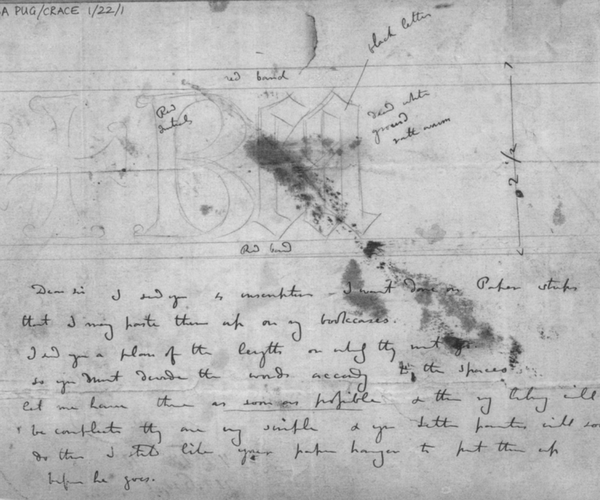 A PUG/CRACE 1/22/1
black letter
red band
Red
initials
dead white
ground
2 1/2
BM
Red band
Dear Sir I send you inscriptions I want done on Paper strips
that I may paste them up on my bookcases.
I send you a plan of the lengths on which they must go
so you must divide the words according to the spaces
let me have them as soon as possible & then my library will
be complete they are very simple & your letter painter will soon
do them I still like your paper hanger to put them up
before he goes.